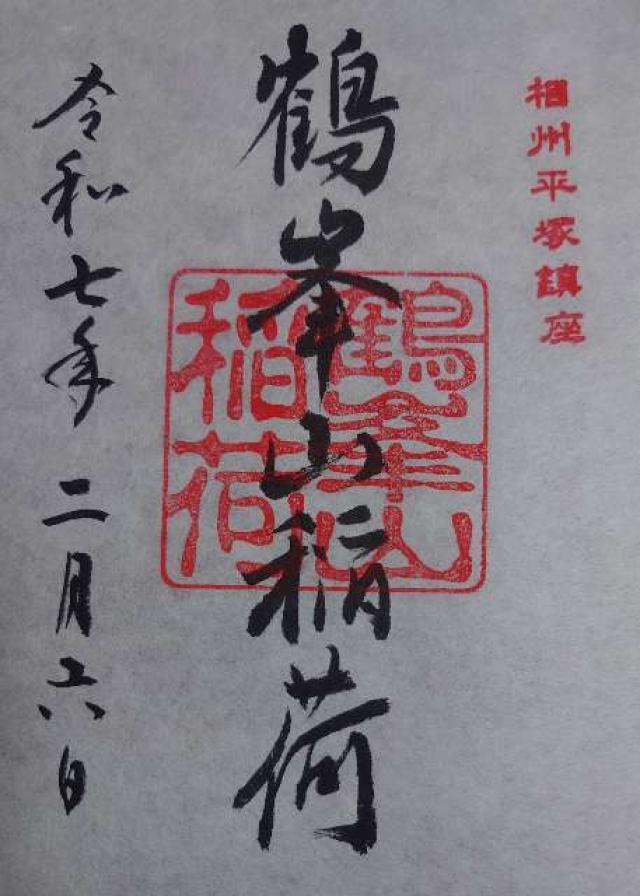 相州平塚鎮座
鶴峯山稲荷
鶴峯山
稲荷
令和七年 二月六日